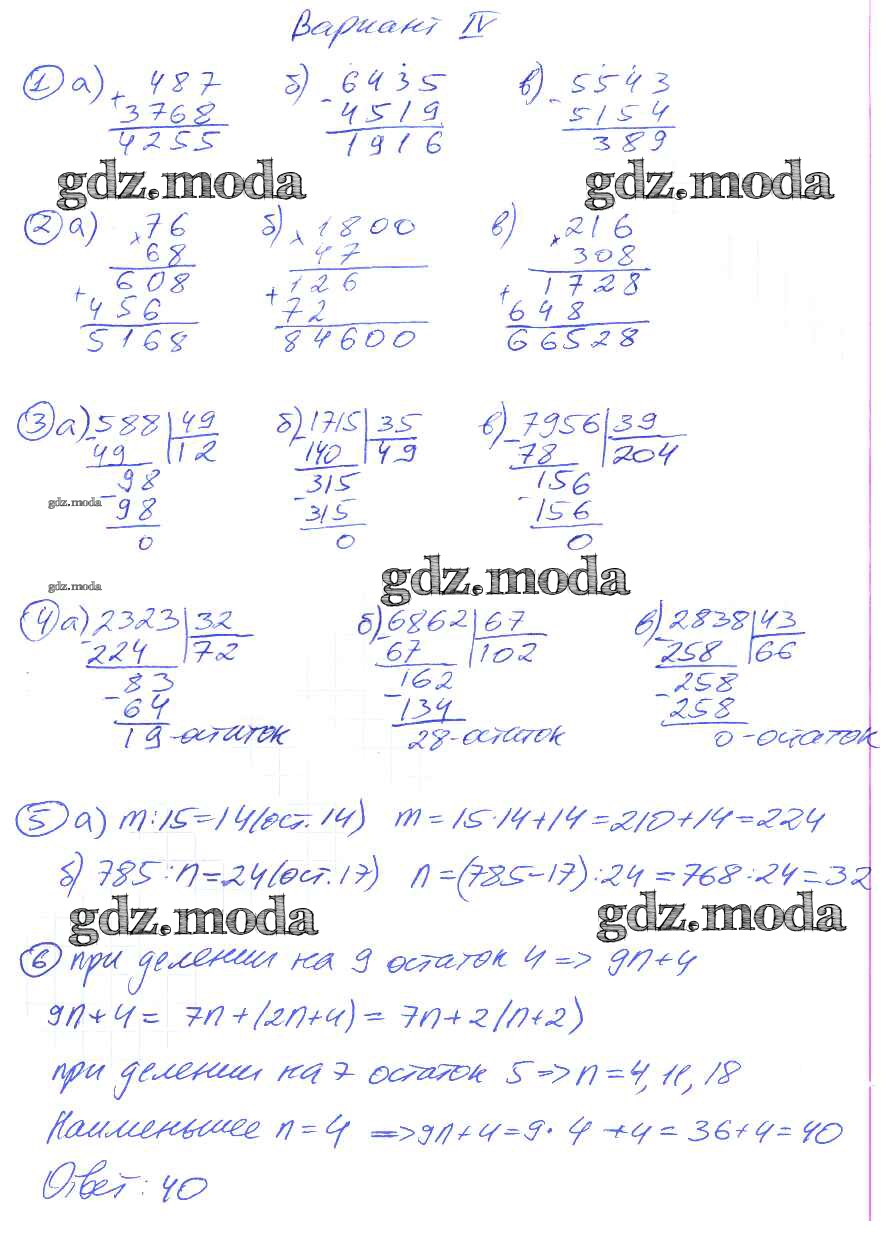 Вариант IV
1 а) + 487 б) - 6435 в) - 5543
3768 4519 5154
4255 1916 389
gdz.moda gdz.moda
2 а) × 76 б) × 1800 в) × 216
68 47 308
608 126 1728
+ 456 + 72 + 648
5168 84600 66528
3 а) - 588 49 б) - 1715 35 в) - 7956 39
49 12 140 49 78 204
- 98 - 315 - 156
gdz.moda 98 315 156
0 0 0
gdz.moda gdz.moda
4 а) - 2323 32 б) - 6862 67 в) - 2838 43
224 72 67 102 258 66
- 83 - 162 - 258
64 134 258
19 - остаток 28 - остаток 0 - остаток
5 а) m:15=14(ост.14) m=15·14+14=210+14=224
б) 785:n=24(ост.17) n=(785-17):24=768:24=32
gdz.moda gdz.moda
6 при делении на 9 остаток 4 => 9n+4
9n+4= 7n+(2n+4)= 7n+2(n+2)
при делении на 7 остаток 5=>n=4, 11, 18
Наименьшее n=4 =>9n+4=9·4+4=36+4=40
Ответ: 40